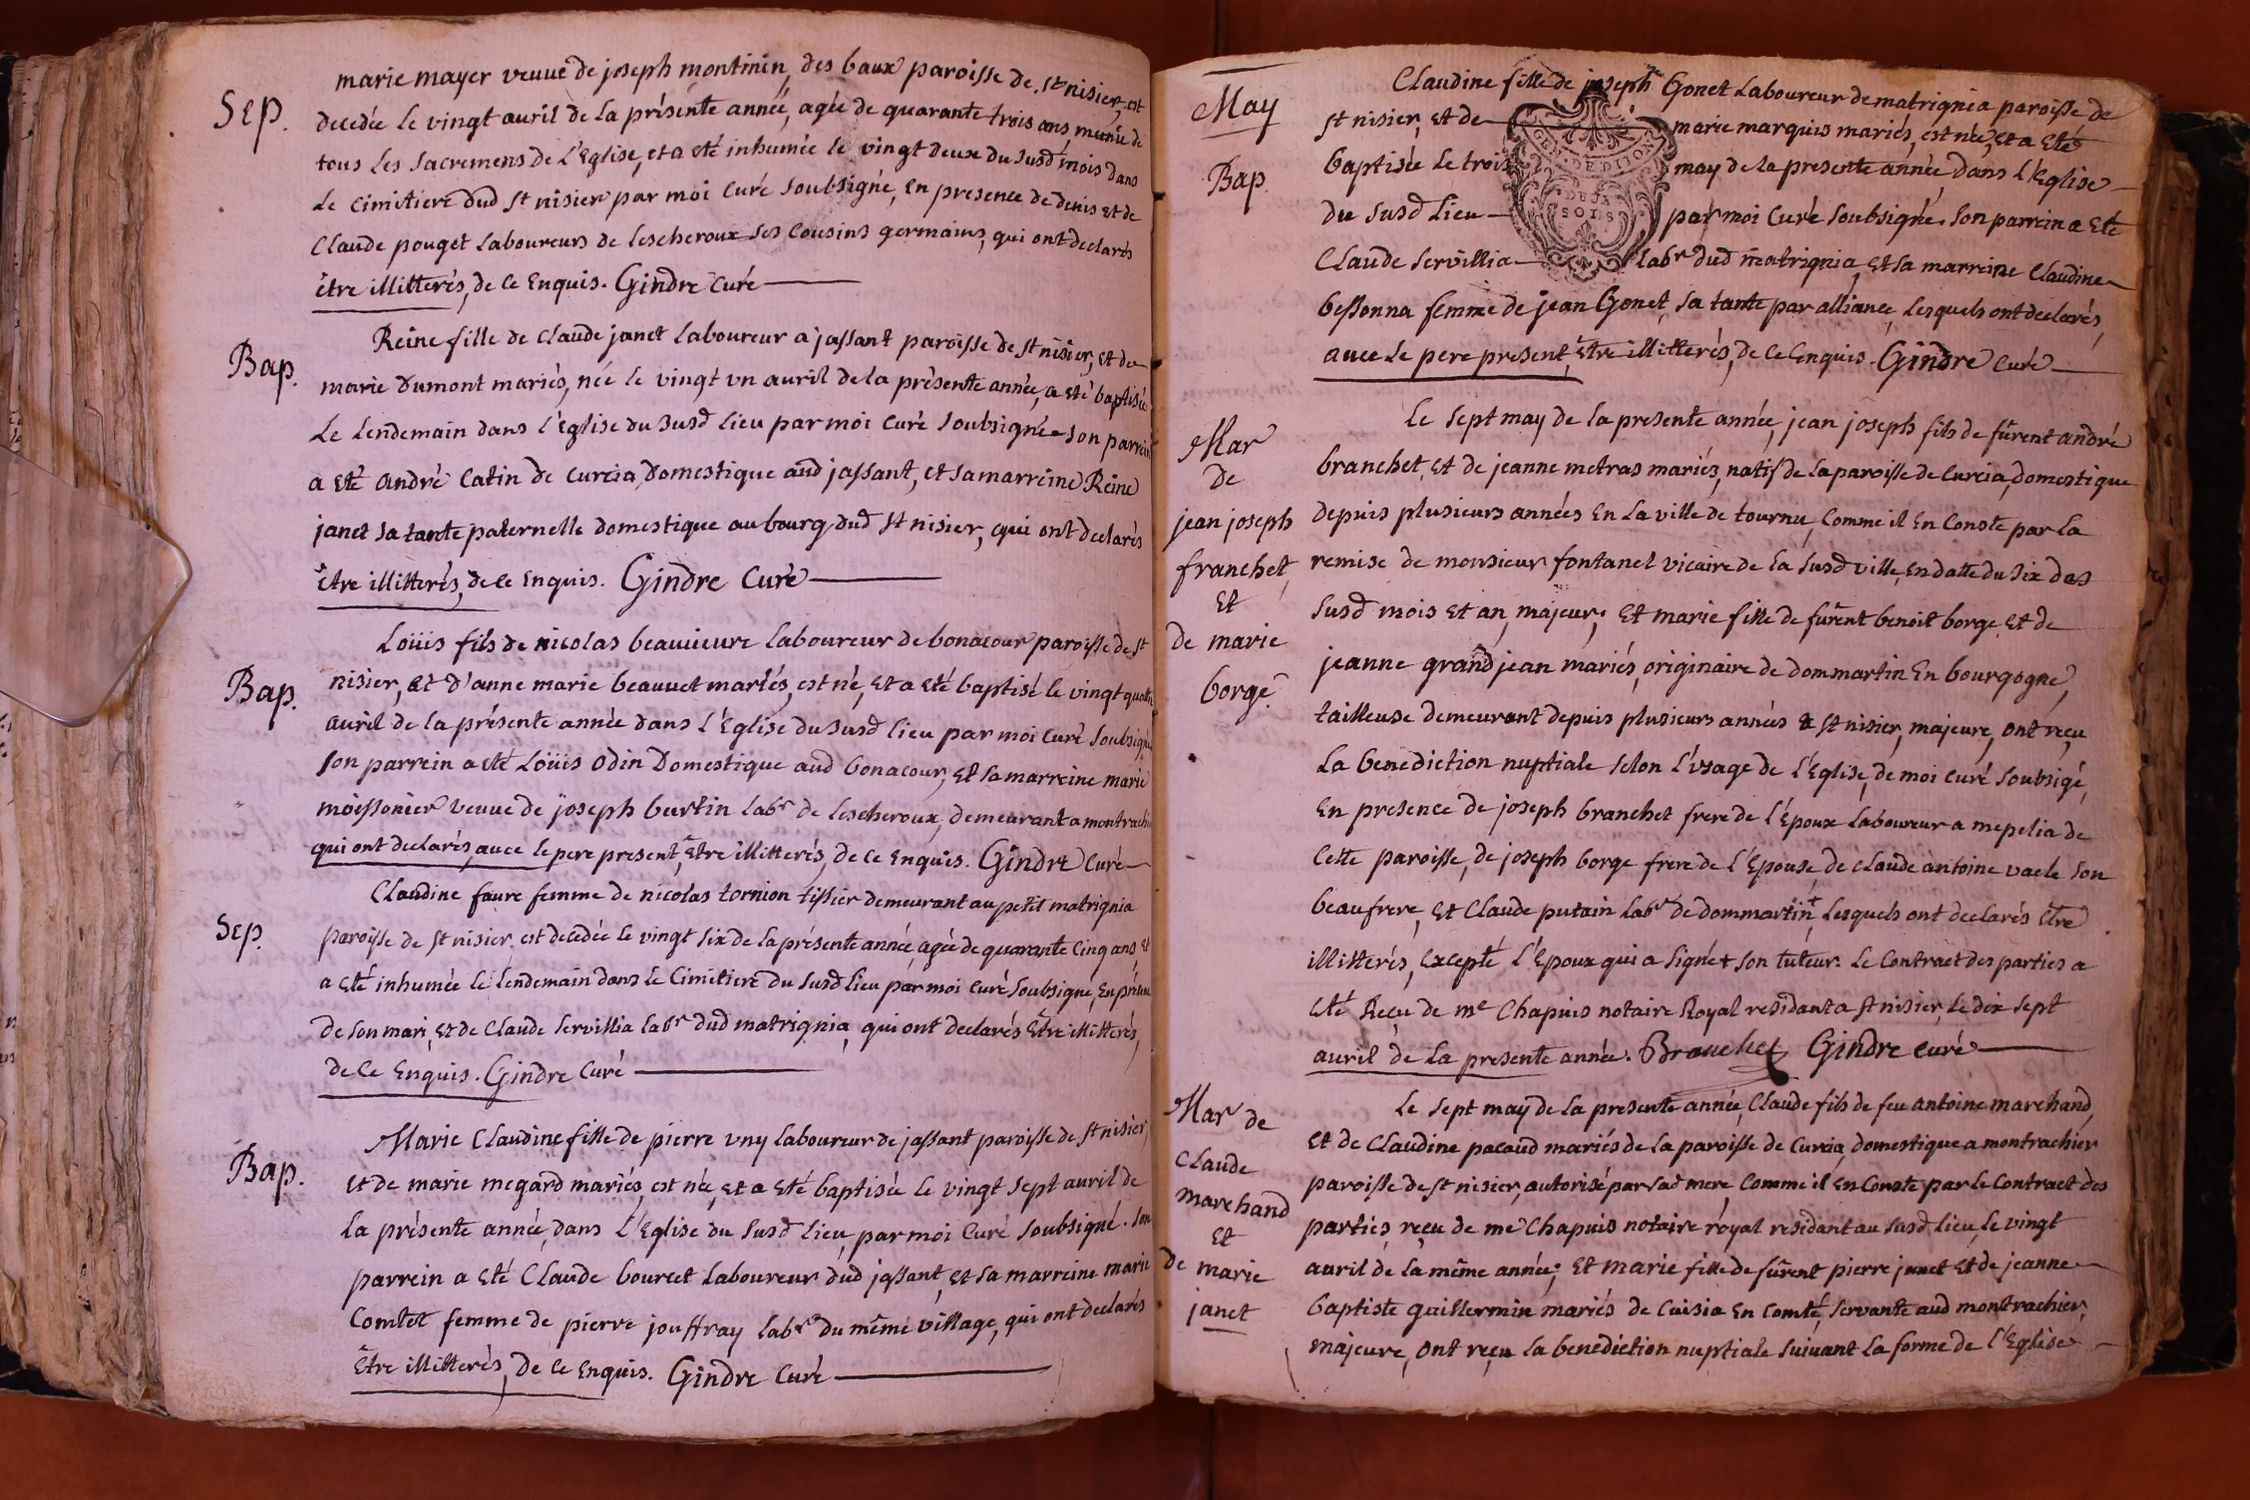 marie mayer veuue de joseph montinin, des baux paroisse de st nisier, est
Sep.
decedée le vingt auril de la présente année, agée de quarante trois ans munie de
tous les sacremens de l'Eglise, et a eté inhumée le vingt deux du susd mois dans
le cimitiere dud st nisier par moi curé soubsigné, en presence de denis et de
claude pouget laboureurs de lescheroux ses cousins germains, qui ont declarés
être illitterés, de ce enquis. Gindre curé
Reine fille de claude janet laboureur a jassant paroisse de st nisier, et de
Bap.
marie dumont mariés, née le vingt vn auril de la présente année, a eté baptisée
le lendemain dans l'Eglise du susd lieu par moi curé soubsigné. son parrein
a eté andré catin de curcia, domestique aud jassant, et sa marreine Reine
janet sa tante paternelle domestique au bourg dud st nisier, qui ont declarés
être illitterés, de ce enquis. Gindre curé
Loüis fils de nicolas beauuieure laboureur de bonacour paroisse de st
Bap.
nisier, et d'anne marie beauuet mariés, est né, et a eté baptisé le vingt quatre
auril de la présente année dans l'Eglise du susd lieu par moi curé soubsigné
son parrein a eté Loüis odin domestique aud bonacour, et sa marreine marie
moissonier veuue de joseph burtin labr de lescheroux, demeurant a montrachier
qui ont declarés, auec le pere present, être illitterés, de ce enquis. Gindre curé
Claudine faure femme de nicolas tornion tissier demeurant au petit matrignia
Sep.
paroisse de st nisier est decedée le vingt six de la présente année, agée de quarante cinq ans, et
a eté inhumée le lendemain dans le cimitiere du susd lieu par moi curé soubsigné, en présence
de son mari, et de claude servillia labr dud matrignia, qui ont declarés être illitterés,
de ce enquis. Gindre curé
Marie Claudine fille de pierre vny laboureur de jassant paroisse de st nisier,
Bap.
et de marie megard mariés, est née, et a eté baptisée le vingt sept auril de
la présente année, dans l'Eglise du susd lieu, par moi curé soubsigné. son
parrein a eté Claude bourcet laboureur dud jassant, et sa marreine marie
Comtet femme de pierre jouffray labr du même village, qui ont declarés
être illitterés, de ce enquis. Gindre curé
May
Claudine fille de joseph Gonet laboureur de matrignia paroisse de
st nisier, et de marie marquis mariés, est née, et a eté
Bap.
baptisée le trois may de la presente année dans l'Eglise
du susd lieu par moi curé soubsigné. son parrein a eté
Claude servillia labr dud matrignia, et sa marreine Claudine
GEN. DE DIJON
DEUX
SOLS
bessonna femme de jean Gonet, sa tante par alliance, lesquels ont declarés,
auec le pere present, être illitterés, de ce enquis. Gindre curé
Mar
de
jean joseph
franchet,
et
de marie
borge.
Le sept may de la presente année, jean joseph fils de fûrent andré
branchet, et de jeanne metras mariés, natif de la paroisse de curcia, domestique
depuis plusieurs années en la ville de tournu, comme il en conste par la
remise de monsieur fontanel vicaire de la susd ville, en datte du six des
susd mois et an, majeur; et marie fille de fûrent benoit borge, et de
jeanne grandjean mariés, originaire de dommartin en bourgogne,
tailleuse demeurant depuis plusieurs années a st nisier, majeure, ont reçu
la benediction nuptiale selon l'vsage de l'Eglise, de moi curé soubsigé,
en presence de joseph branchet frere de l'époux laboureur a mepelia de
cette paroisse, de joseph borge frere de l'épouse, de claude antoine vacle son
beaufrere, et Claude putain labr de dommartin +, lesquels ont declarés être
illitterés, excepté l'époux qui a signé + son tuteur. le contract des parties a
eté reçu de me Chapuis notaire Royal residant a st nisier, le dix sept
auril de la presente année. Branchet Gindre curé
Mar de
claude
marchand
et
de marie
janet
Le sept may de la presente année, Claude fils de feu antoine marchand,
et de Claudine pacaud mariés de la paroisse de Curcia, domestique a montrachier
paroisse de st nisier, autorisé par sad mere, comme il en conste par le contract des
parties, reçu de me Chapuis notaire royal residant au susd lieu, le vingt
auril de la même année; et marie fille de fûrent pierre janet et de jeanne
baptiste guillermin mariés de Cuisia en comté, servante aud montrachier,
majeure, ont reçu la benediction nuptiale suiuant la forme de l'Eglise